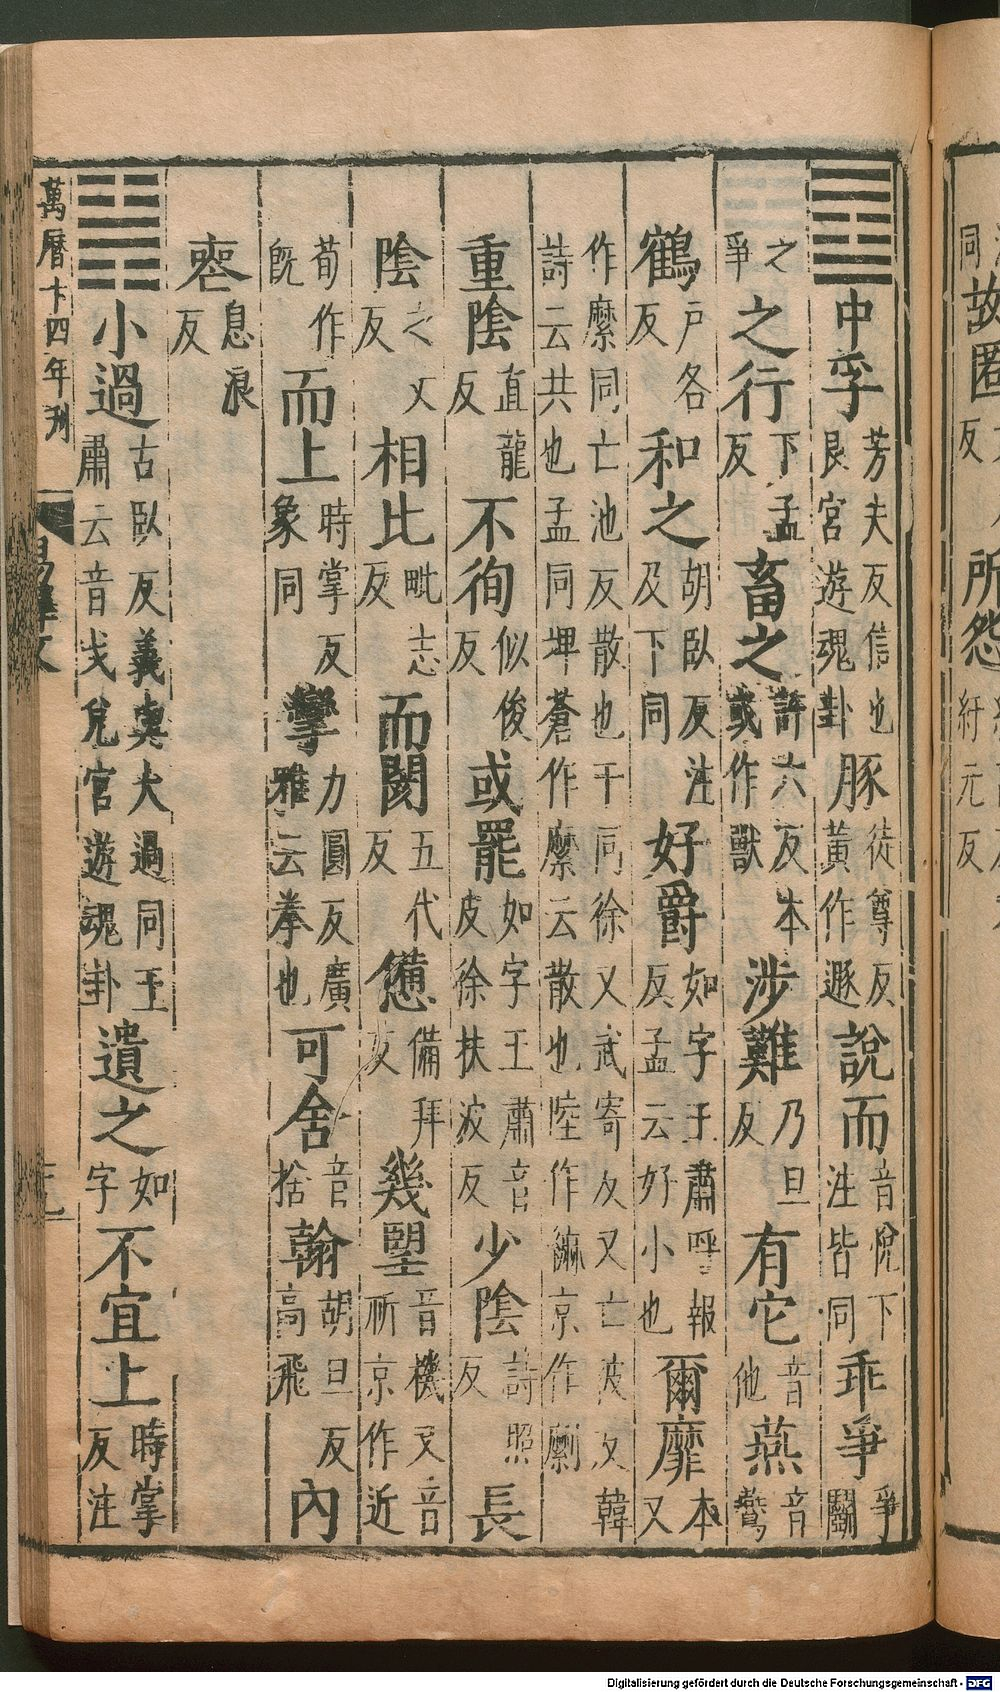 同故匿 反 所怨 紆元反
䷼中孚芳夫反信也艮宮遊魂卦豚徒尊反黃作遯說而音悅下注皆同乖爭爭鬭
之爭之行下孟反畜之許六反本或作獸涉難乃旦反有它音他燕音鷰
鶴戶各反和之胡臥反注及下同好爵如字王肅呼報反孟云好小也爾靡本又
作縻同亡池反散也干同徐又武寄反又亡彼反韓詩云共也孟同埤蒼作縻云散也陸作䌕京作劘
重陰直龍反不徇似俊反或罷如字王肅音皮徐扶波反少陰詩照反長
陰之丈反相比毗志反而閡五代反憊備拜反幾朢音機又音祈京作近
荀作既而上時掌反象同攣力圓反廣雅云拳也可舍音捨翰胡旦反高飛內
喪息浪反
䷽小過古臥反義與大過同王肅云音戈兌宮遊魂卦遺之如字不宜上時掌反注
萬曆十四年刊
易釋文
Digitalisierung gefördert durch die Deutsche Forschungsgemeinschaft - DFG